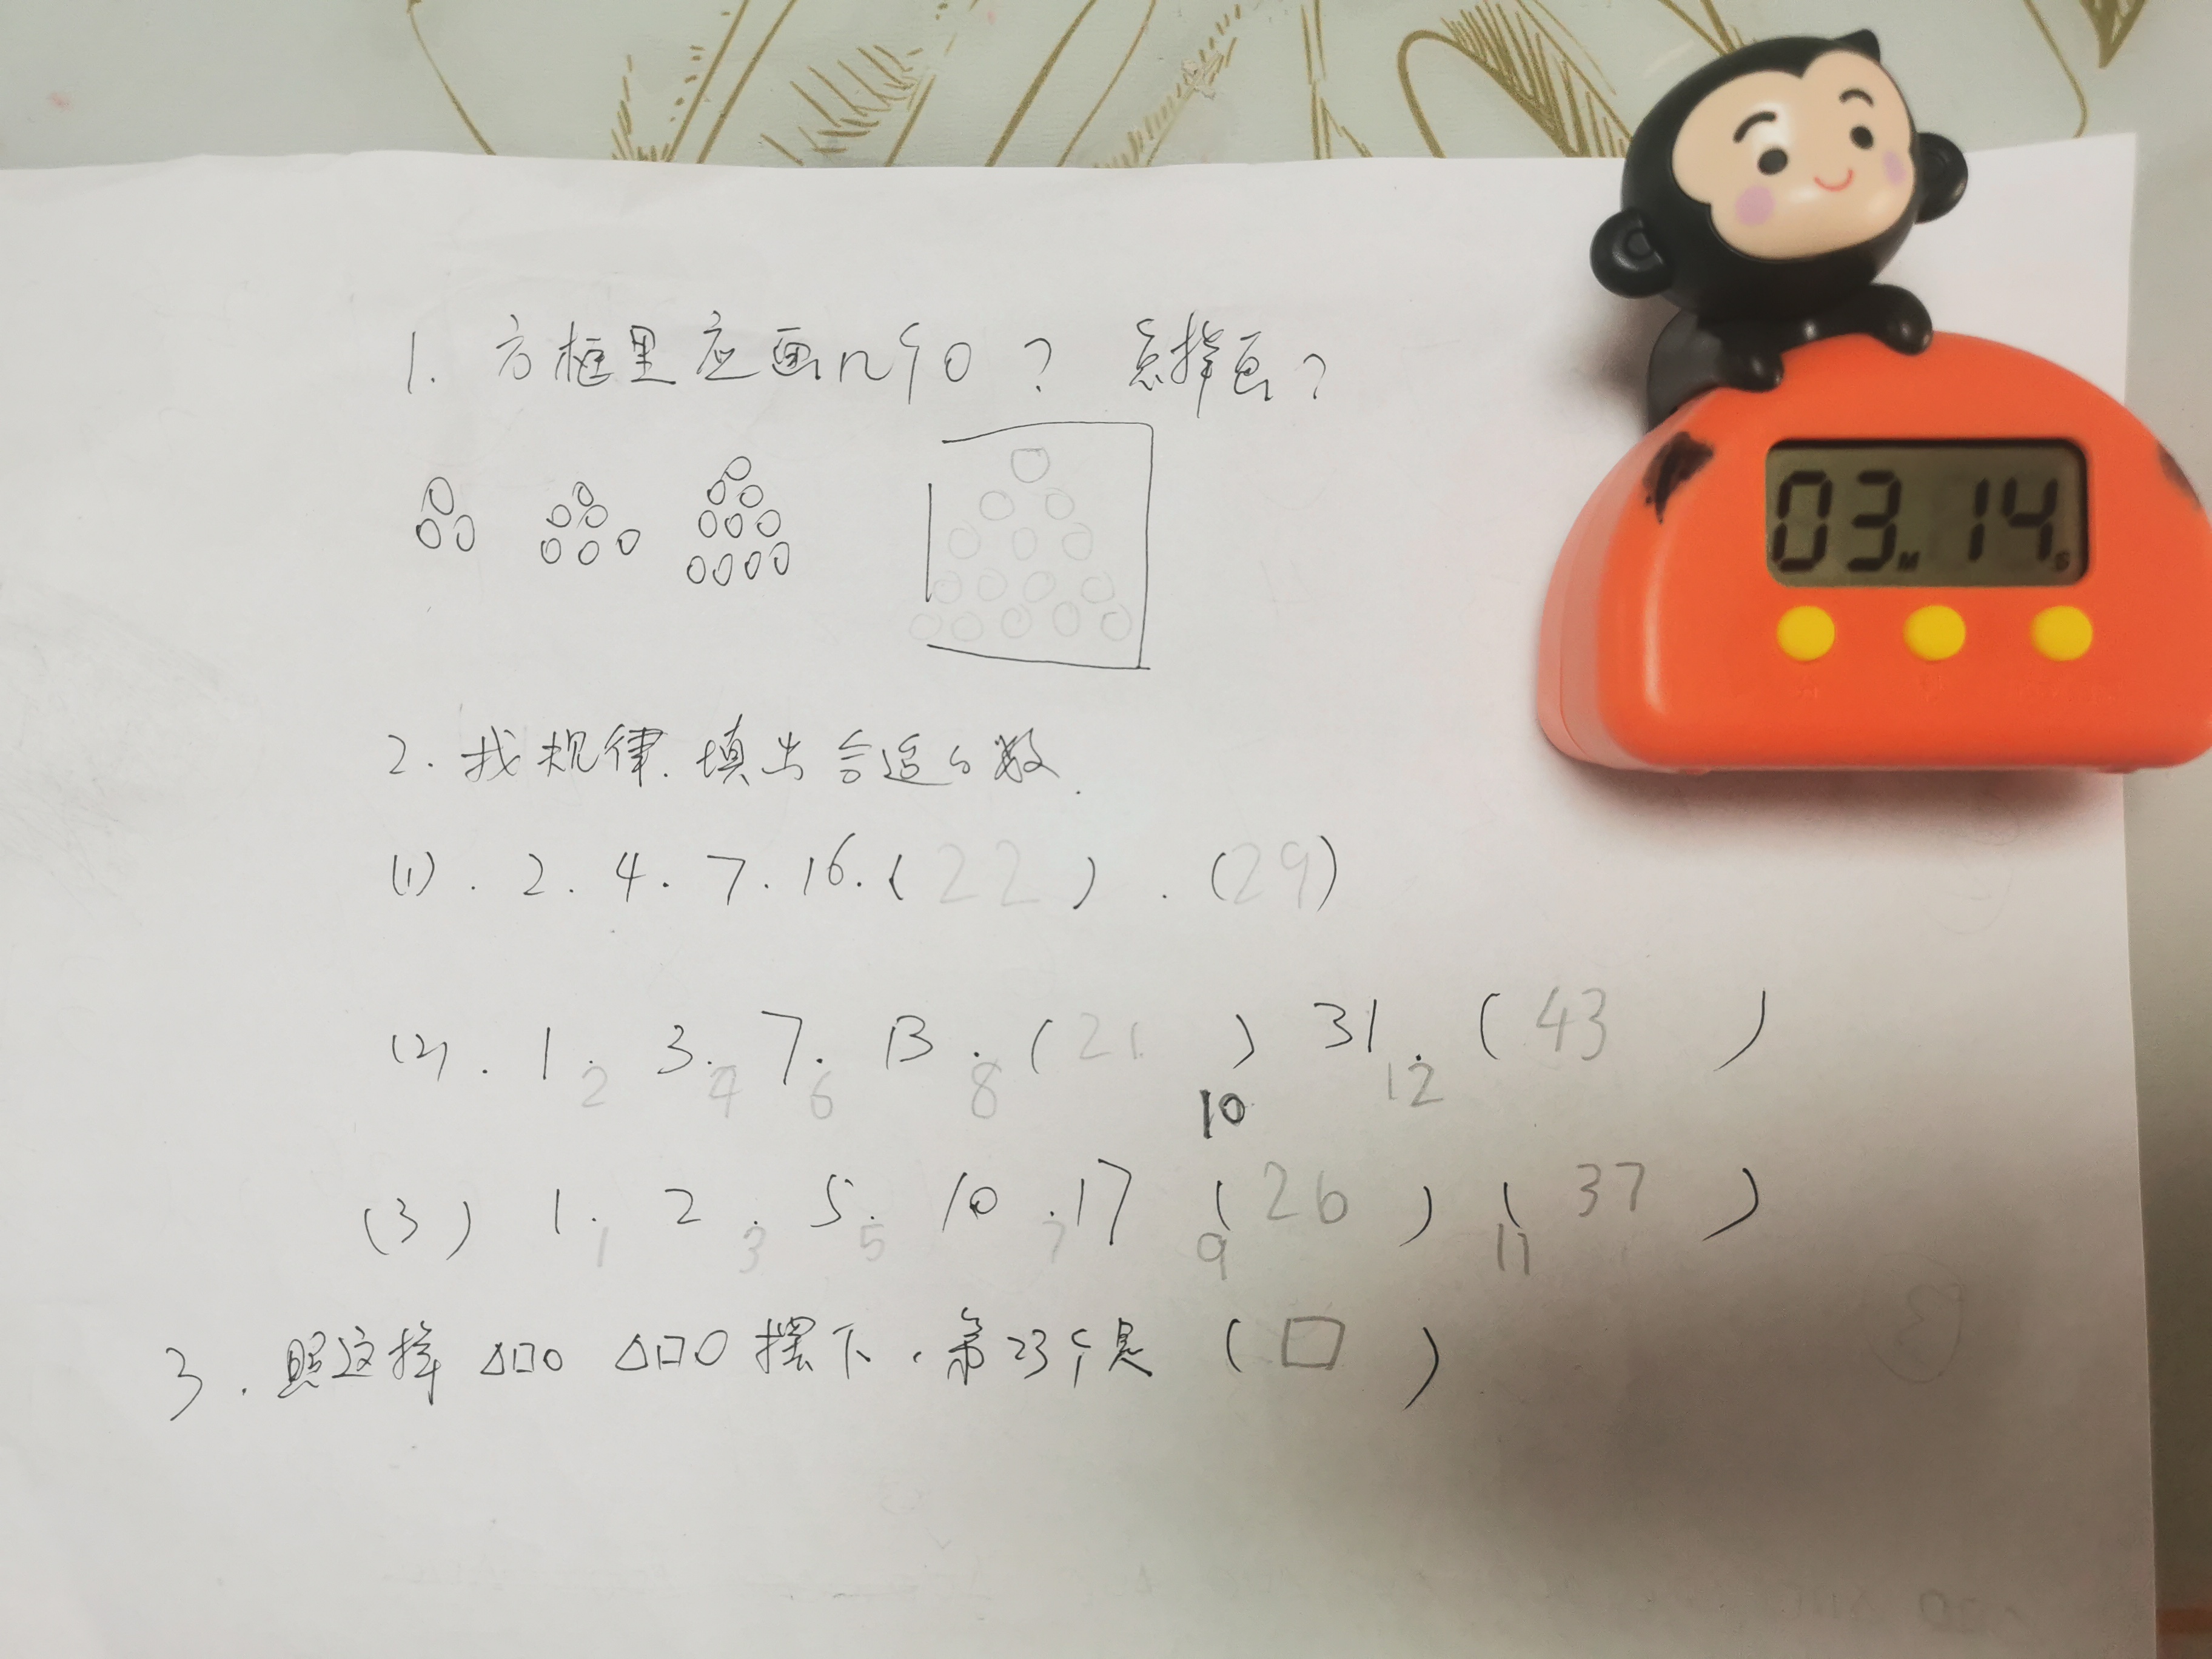 03M 14S
1. 方框里应画几个O？怎样画？
2. 找规律. 填出合适的数.
(1). 2. 4. 7. 16. (22). (29)
(2). 1. 3. 7. 13. (21) 31. (43)
2 4 6 8 10 12
(3) 1. 2. 5. 10. 17 (26) (37)
1 3 5 7 9 11
3. 照这样 △□○ △□○ 摆下, 第23个是 (□)